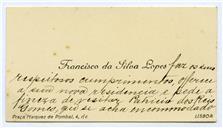 Francisco da Silva Lopes faz os seus
respeitosos cumprimentos, oferece
a sua nova residencia e pede a
fineza de visitar Patricio dos Reis
Gomes, que se acha incommodado
Praça Marquez de Pombal, 4, r/c
LISBOA